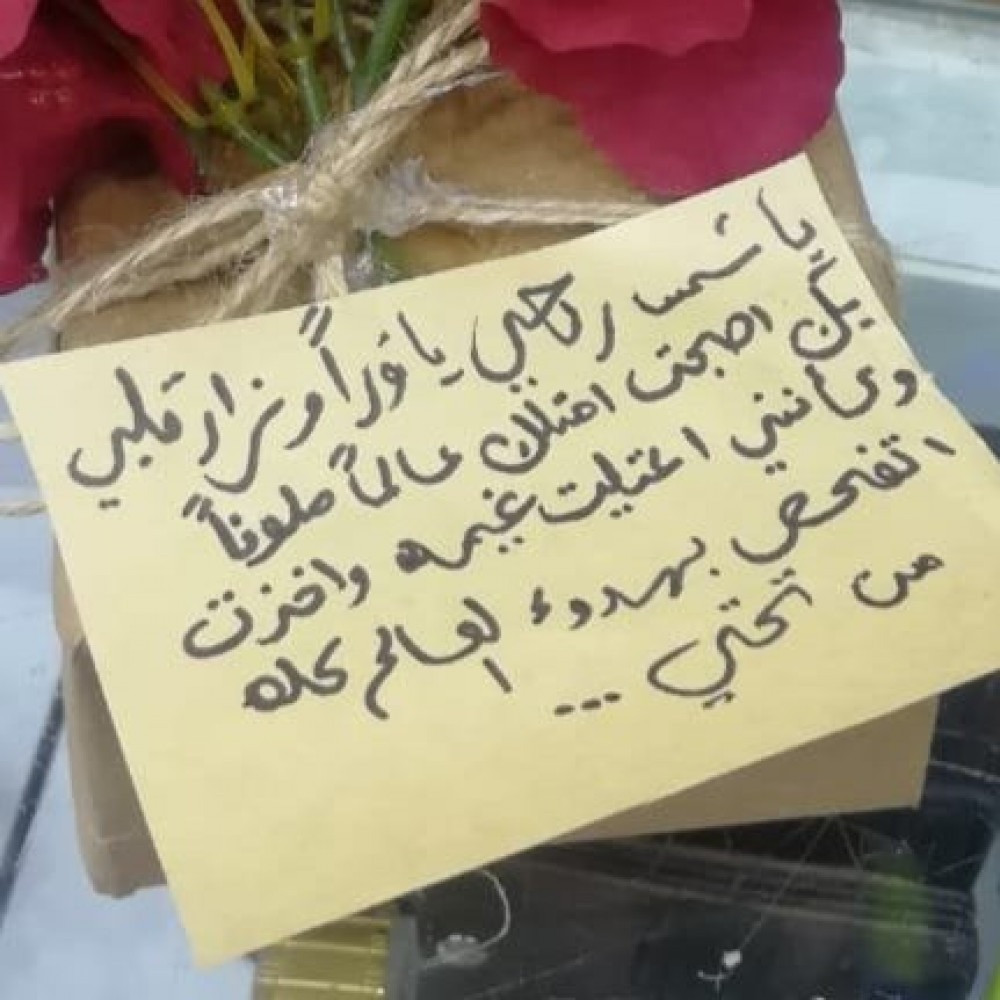 يا شمس رحي يا نوراً ومزار قلبي
بكِ اصبحت امتلك عالماً ملوناً
وكأنني اعتليت غيمه واخذت
اتفحص بهدوء العالم كله
من تحتي ...